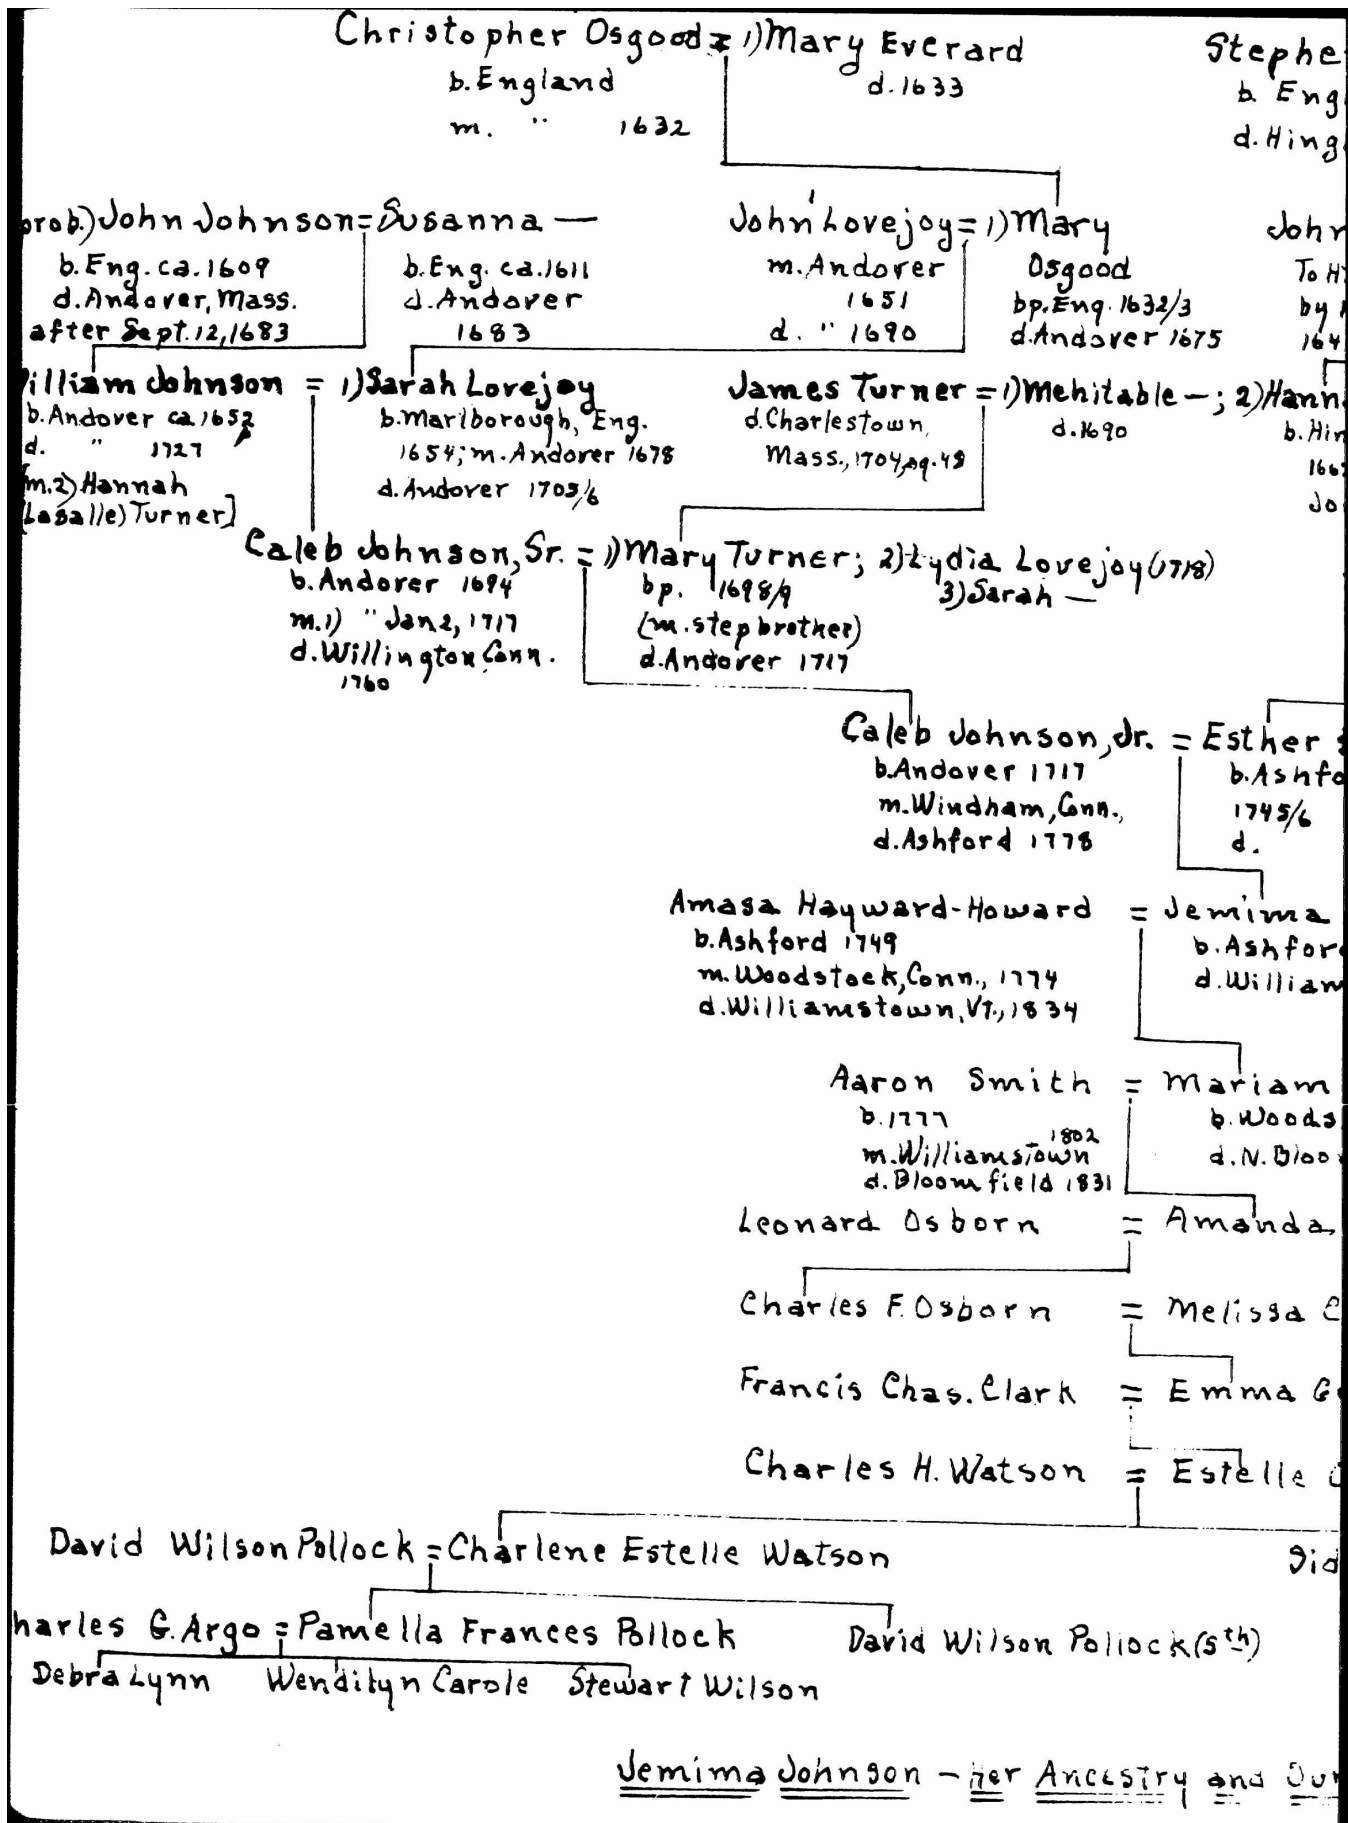 Christopher Osgood = 1) Mary Everard
b. England
d. 1633
m. " 1632
Stephe
b. Eng
d. Hing
prob.) John Johnson = Susanna —
b. Eng. ca. 1609
d. Andover, Mass.
after Sept. 12, 1683
b. Eng. ca. 1611
d. Andover
1683
John Lovejoy = 1) Mary
Osgood
m. Andover
1651
d. " 1690
bp. Eng. 1632/3
d. Andover 1675
John
To H
by
164
William Johnson = 1) Sarah Lovejoy
b. Andover ca 1652
d. " 1727
[m. 2) Hannah
(Lasalle) Turner]
b. Marlborough, Eng.
1654; m. Andover 1678
d. Andover 1705/6
James Turner = 1) Mehitable —; 2) Hann
d. Charlestown,
Mass., 1704, ag. 48
d. 1690
b. Hin
166
Jo
Caleb Johnson, Sr. = 1) Mary Turner; 2) Lydia Lovejoy (1718)
3) Sarah —
b. Andover 1694
m. 1) " Jan 2, 1717
d. Willington Conn.
1760
bp. 1698/9
(m. stepbrother)
d. Andover 1717
Caleb Johnson, Jr. = Esther
b. Andover 1717
m. Windham, Conn.,
d. Ashford 1778
b. Ashfo
1745/6
d.
Amasa Hayward-Howard = Jemima
b. Ashford 1749
m. Woodstock, Conn., 1774
d. Williamstown, Vt., 1834
b. Ashfor
d. William
Aaron Smith = Mariam
b. 1777
m. Williamstown 1802
d. Bloomfield 1831
b. Woods
d. N. Bloo
Leonard Osborn = Amanda
Charles F. Osborn = Melissa C
Francis Chas. Clark = Emma G
Charles H. Watson = Estelle C
David Wilson Pollock = Charlene Estelle Watson
Sid
harles G. Argo = Pamella Frances Pollock
David Wilson Pollock (5th)
Debra Lynn Wendilyn Carole Stewart Wilson
Jemima Johnson – her Ancestry and